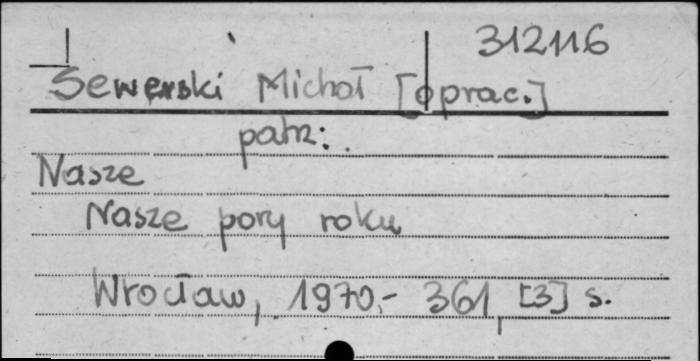 312116
Sewerski Michał [oprac.]
patrz:
Nasze
Nasze pory roku
Wrocław, 1970,- 361, [3] s.